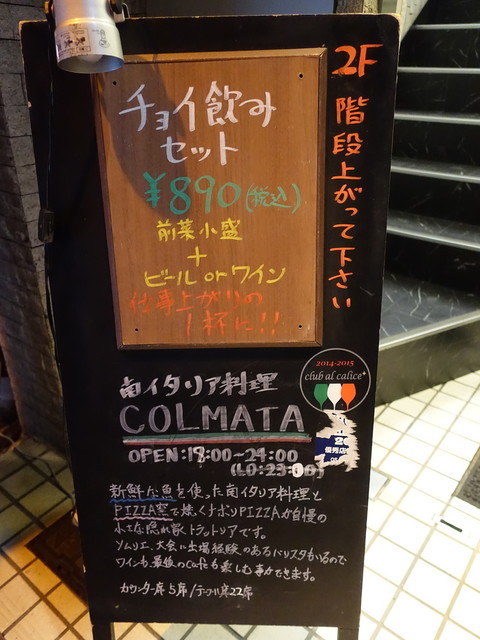 2F
階段上がって下さい
チョイ飲み
セット
¥890(税込)
前菜小盛
+
ビール or ワイン
仕事上がりの
1杯に!!
2014-2015
club al calice
南イタリア料理
COLMATA
OPEN:18:00~24:00
(LO:23:00)
優秀店
新鮮な魚を使った南イタリア料理と
PIZZA窯で焼くナポリPIZZAが自慢の
小さな隠れ家トラットリアです。
ソムリエ、大会に出場経験のあるバリスタがいるので
ワインも最後のcafeも楽しむ事ができます。
カウンター席5席/テーブル席22席